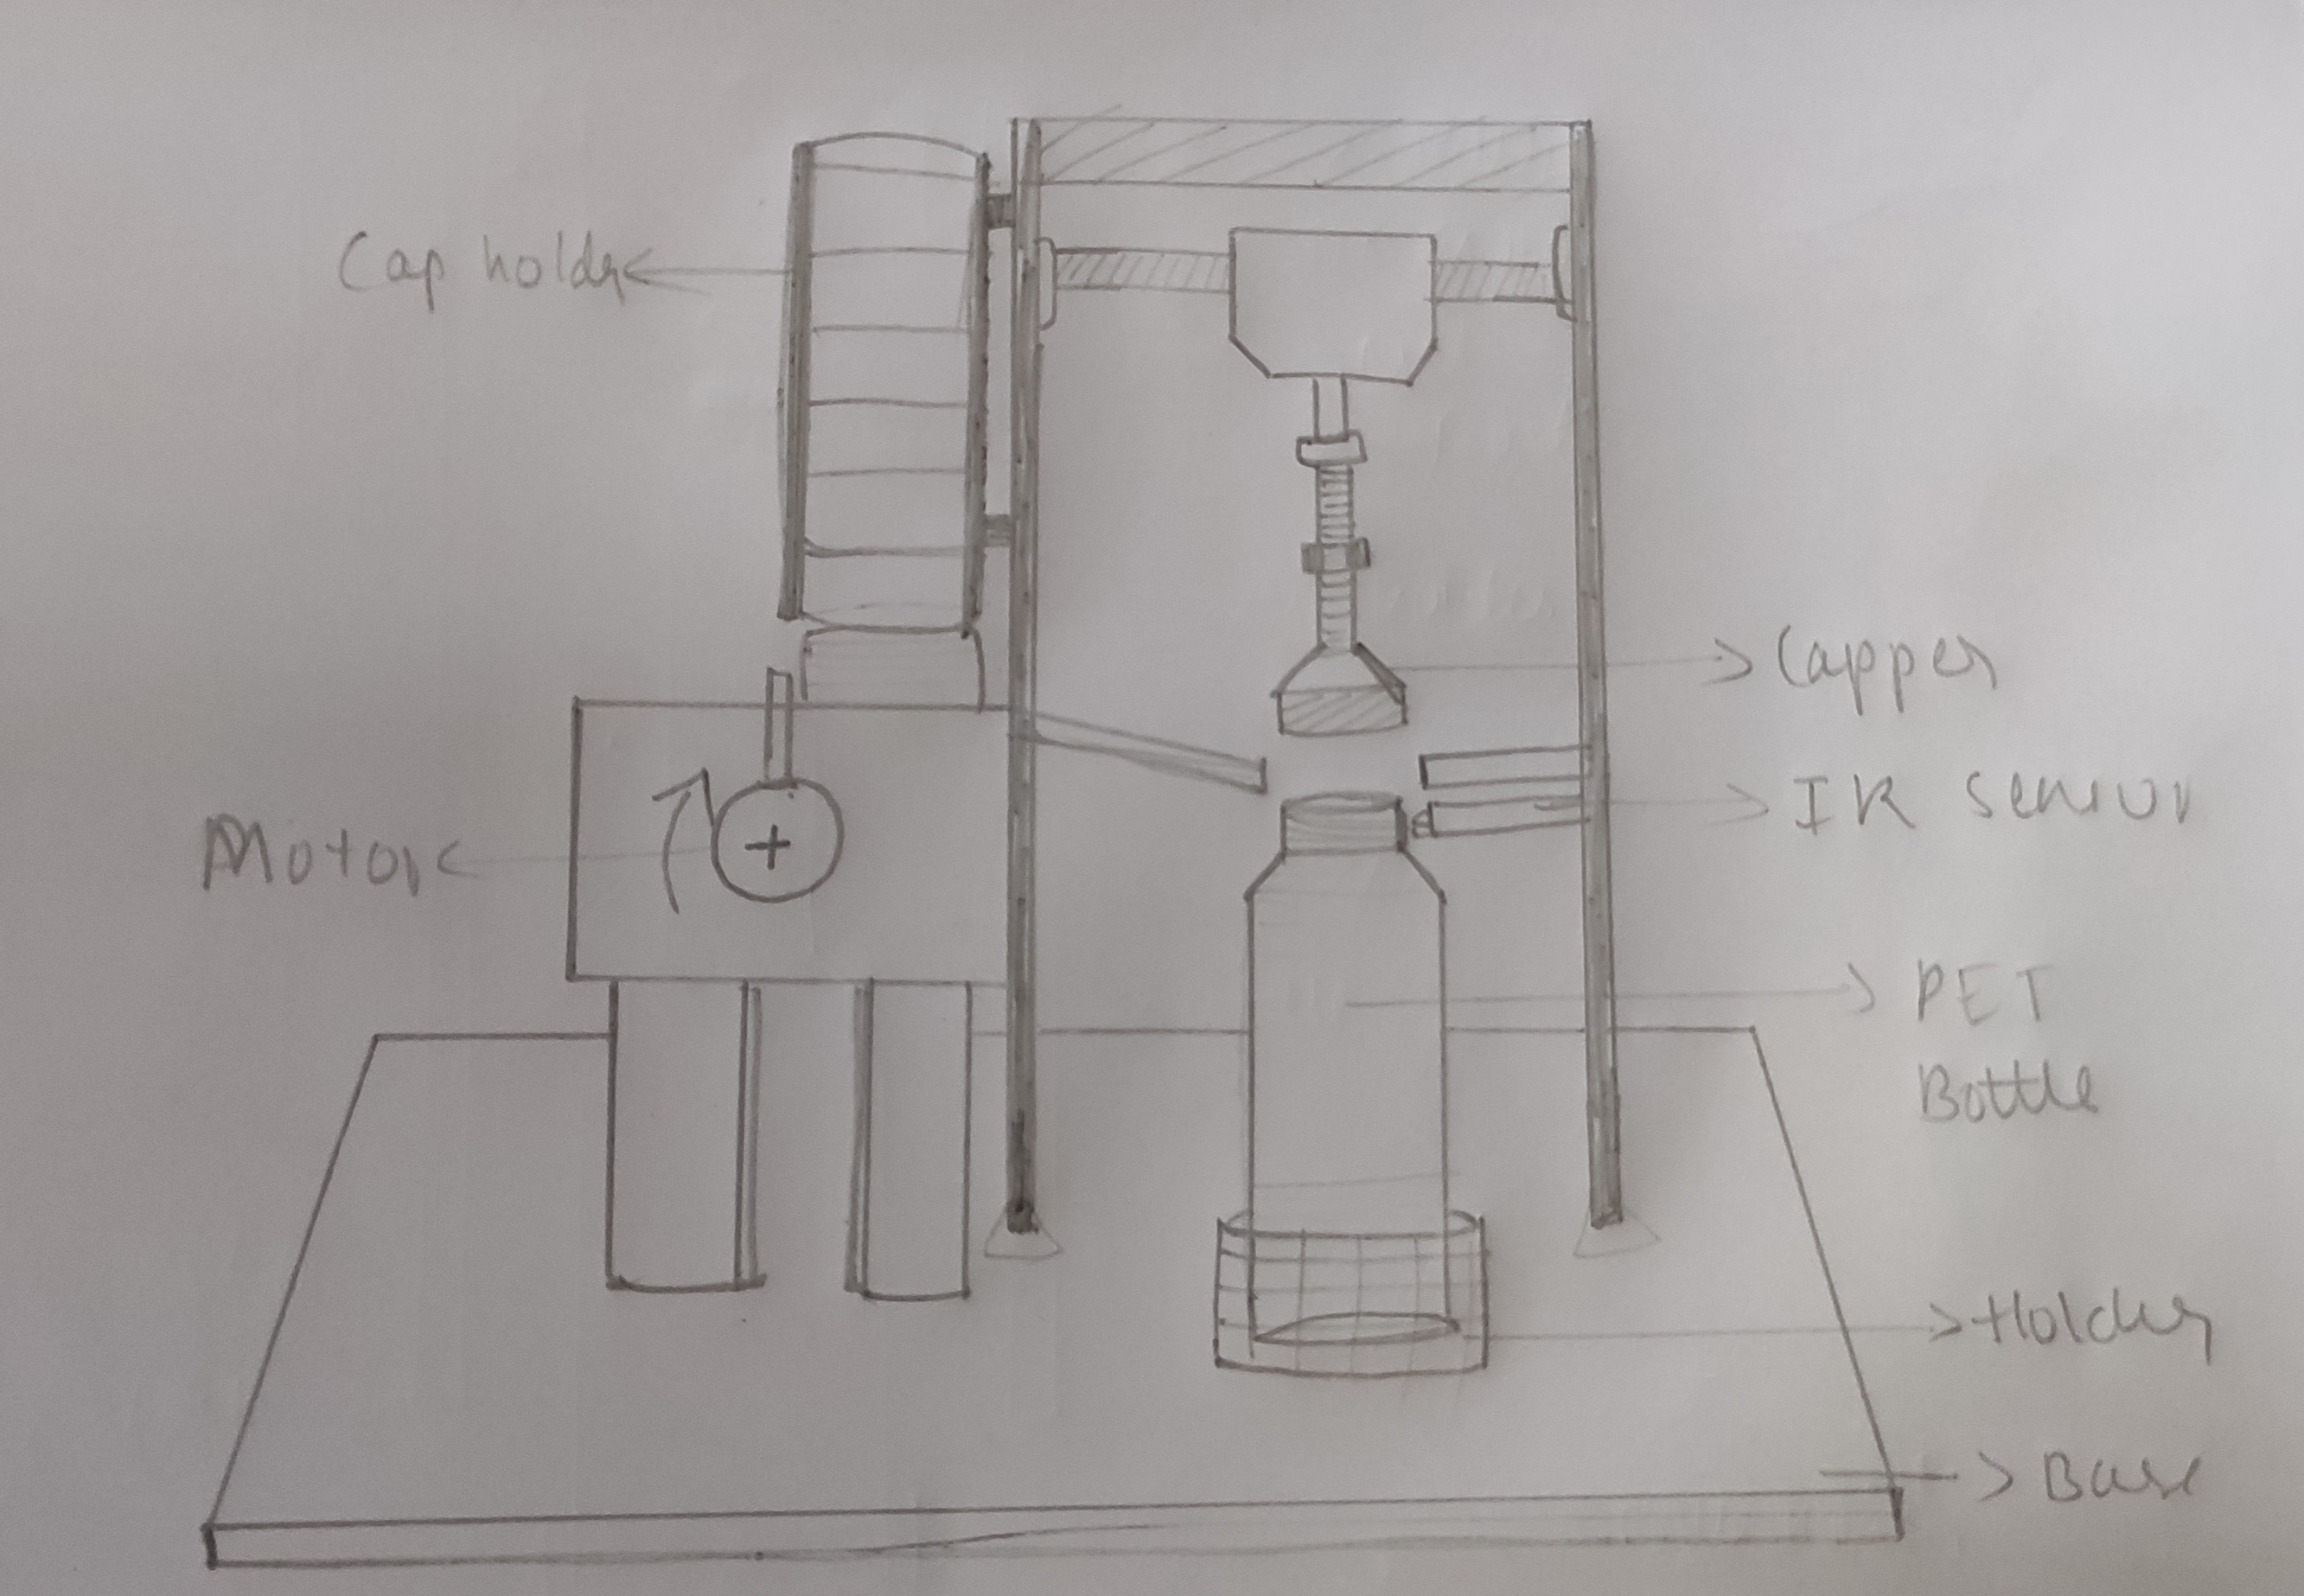 Cap holder
Capper
IR Sensor
Motor
PET
Bottle
Holder
Base